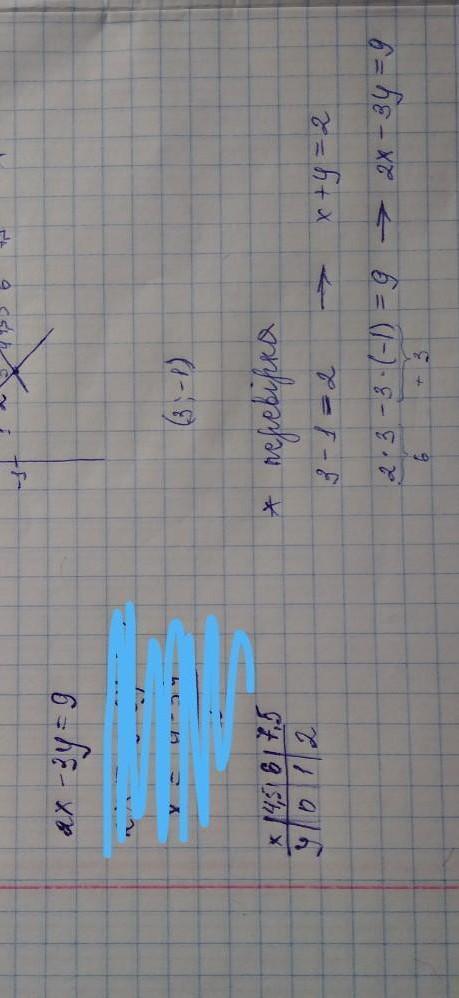 -1
2x - 3y = 9
(3; -1)
x | 4,5 | 6 | 7,5
y | 0 | 1 | 2
* перевірка
3 - 1 = 2 → x + y = 2
2 · 3 - 3 · (-1) = 9 → 2x - 3y = 9
6 + 3